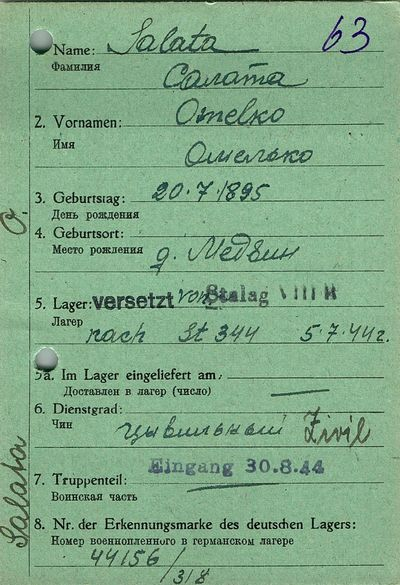 63
Name: Salata
Фамилия
Салата
2. Vornamen: Omelko
Имя
Омелько
3. Geburtstag: 20.7.1895
День рождения
4. Geburtsort:
Место рождения
д. Медвин
5. Lager: versetzt von Stalag VIII B
Лагер
nach St 344 5.7.44г.
5a. Im Lager eingeliefert am,
Доставлен в лагер (число)
6. Dienstgrad:
Чин
цывильный Zivil
Eingang 30.8.44
7. Truppenteil:
Воинская часть
8. Nr. der Erkennungsmarke des deutschen Lagers:
Номер военнопленного в германском лагере
44156/318
Salata O.